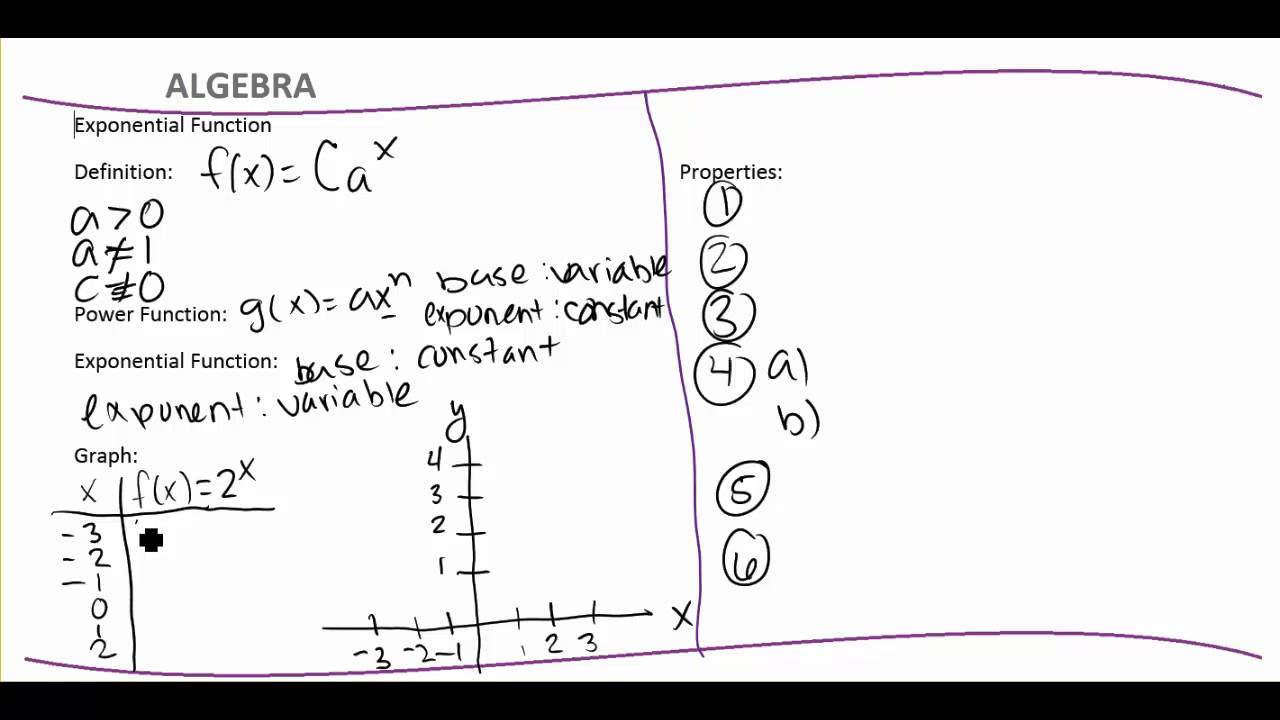 ALGEBRA
Exponential Function
Definition: f(x)=Ca^x
a>0
a≠1
C≠0
Power Function: g(x)=ax^n base:variable
exponent:constant
Exponential Function: base: constant
exponent:variable
Graph:
x f(x)=2^x
-3
-2
-1
0
1
2
y
4
3
2
1
-3 -2 -1 1 2 3 x
Properties:
1
2
3
4 a)
b)
5
6